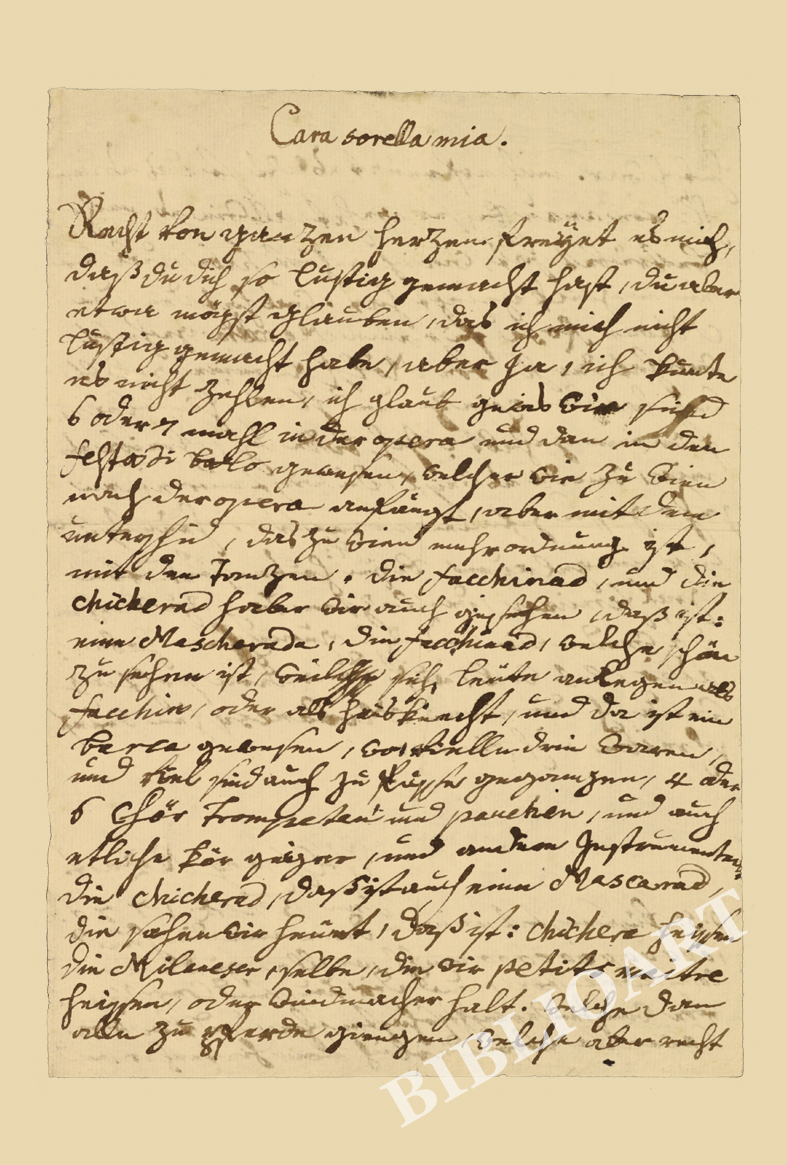 Cara sorella mia.
Recht von ganzen herzen freyet es mich,
daß du dich so lustig gemacht hast, du aber
etwa mögst glauben, das ich mich nicht
lustig gemacht habe, aber ja, ich kunte
es nicht zehlen, ich glaub gewis wir sind
6 oder 7 mahl in der opera und dan in den
festa di ballo gewesen, welcher wie zu wien
nach der opera anfängt, aber mit dem
unterschid, das zu wien mehr ordnung ist,
mit den Tantzen. die facchinad, und die
chicherad haben wir auch gesehen, daß ist:
eine Mascherada, die facchinad, welche schön
zu sehen ist, weil sich leüte anlegen als
facchin, oder als hausknecht, und da ist ein
barca gewesen, wo vielle drin waren,
und viel sind auch zu fusse gegangen, 4 oder
6 Chör Trompeten und paucken, und auch
etliche kör geigen, und andere Instrumenten.
die chicherad, daß ist auch eine Mascarad,
die sahen wir heünt, daß ist: chichera heissen
die Mileneser, selbe, die wir petits maitre
heissen, oder windmacher halt. welche dan
alle zu pferde giengen, welche aber recht
BIBLIOART